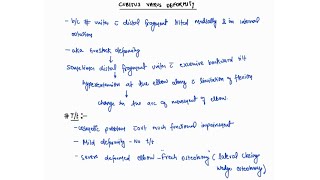 CUBITUS VARUS DEFORMITY
- b/c # unites c̄ distal fragment tilted medially & in internal
rotation
- aka Gunstock deformity
Sometimes distal fragment unites c̄ excessive backward tilt
↓
hyperextension at the elbow along c̄ limitation of flexion
↓
change in the arc of movement of elbow
# T/t :-
- Cosmetic problem w/out much functional impairement
- Mild deformity - No T/t
- Severe deformed elbow - French osteotomy (lateral closing
wedge osteotomy)